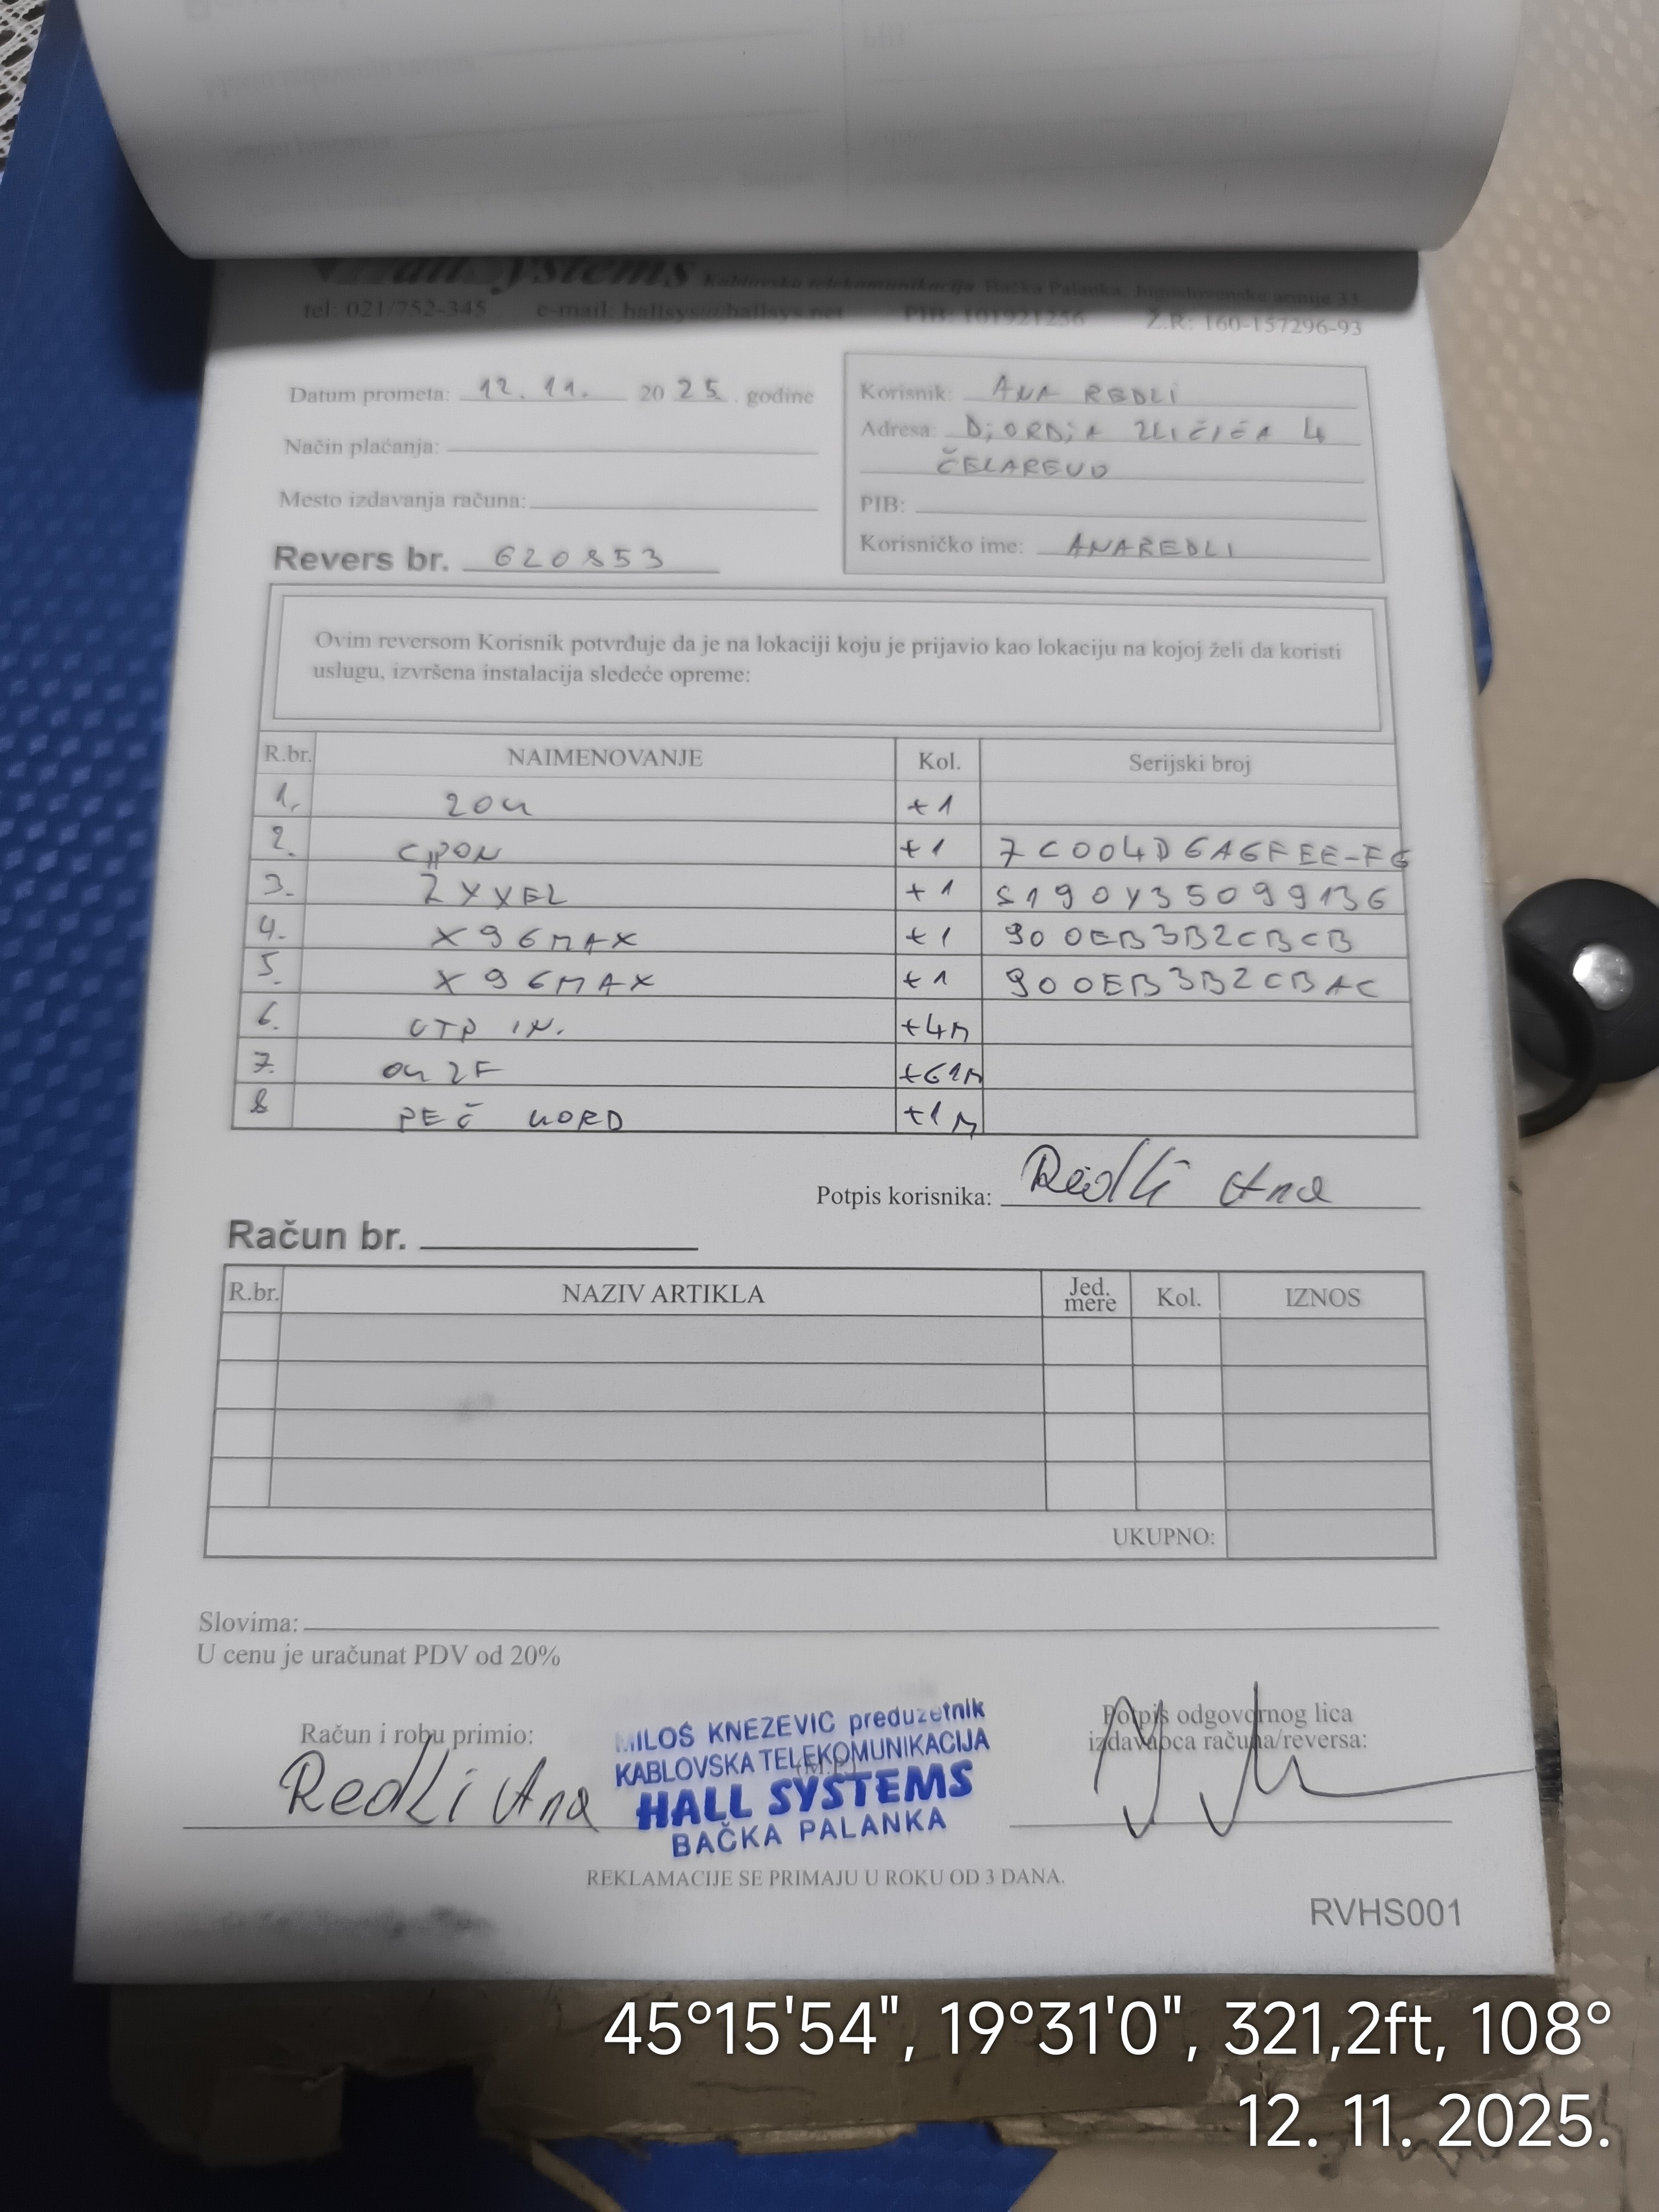 Hall Systems Kablovska telekomunikacija Bačka Palanka, Jugoslovenske armije 33
tel: 021/752-345 e-mail: hallsys@hallsys.net PIB: 101921256 Ž.R: 160-157296-93
Datum prometa: 12. 11. 20 25. godine
Način plaćanja:
Mesto izdavanja računa:
Revers br. 620853
Korisnik: ANA REDLI
Adresa: DjORDjA ZLIČIĆA 4
ČELAREVO
PIB:
Korisničko ime: ANAREDLI
Ovim reversom Korisnik potvrđuje da je na lokaciji koju je prijavio kao lokaciju na kojoj želi da koristi
uslugu, izvršena instalacija sledeće opreme:
R.br. NAIMENOVANJE Kol. Serijski broj
1. ZOK +1
2. CPON +1 7C004D6A6FEE-FG
3. ZYXEL +1 S190Y35099136
4. X96MAX +1 900EB3B2CBCB
5. X96MAX +1 900EB3B2CBAC
6. UTP IN. +4M
7. OK 2F +61M
8 PEČ KORD +1M
Potpis korisnika: Redli Ana
Račun br.
R.br. NAZIV ARTIKLA Jed. mere Kol. IZNOS
UKUPNO:
Slovima:
U cenu je uračunat PDV od 20%
Račun i robu primio:
Redli Ana
MILOŠ KNEZEVIC preduzetnik
KABLOVSKA TELEKOMUNIKACIJA
(M.P.)
HALL SYSTEMS
BAČKA PALANKA
Potpis odgovornog lica
izdavaoca računa/reversa:
REKLAMACIJE SE PRIMAJU U ROKU OD 3 DANA.
RVHS001
45°15'54", 19°31'0", 321,2ft, 108°
12. 11. 2025.